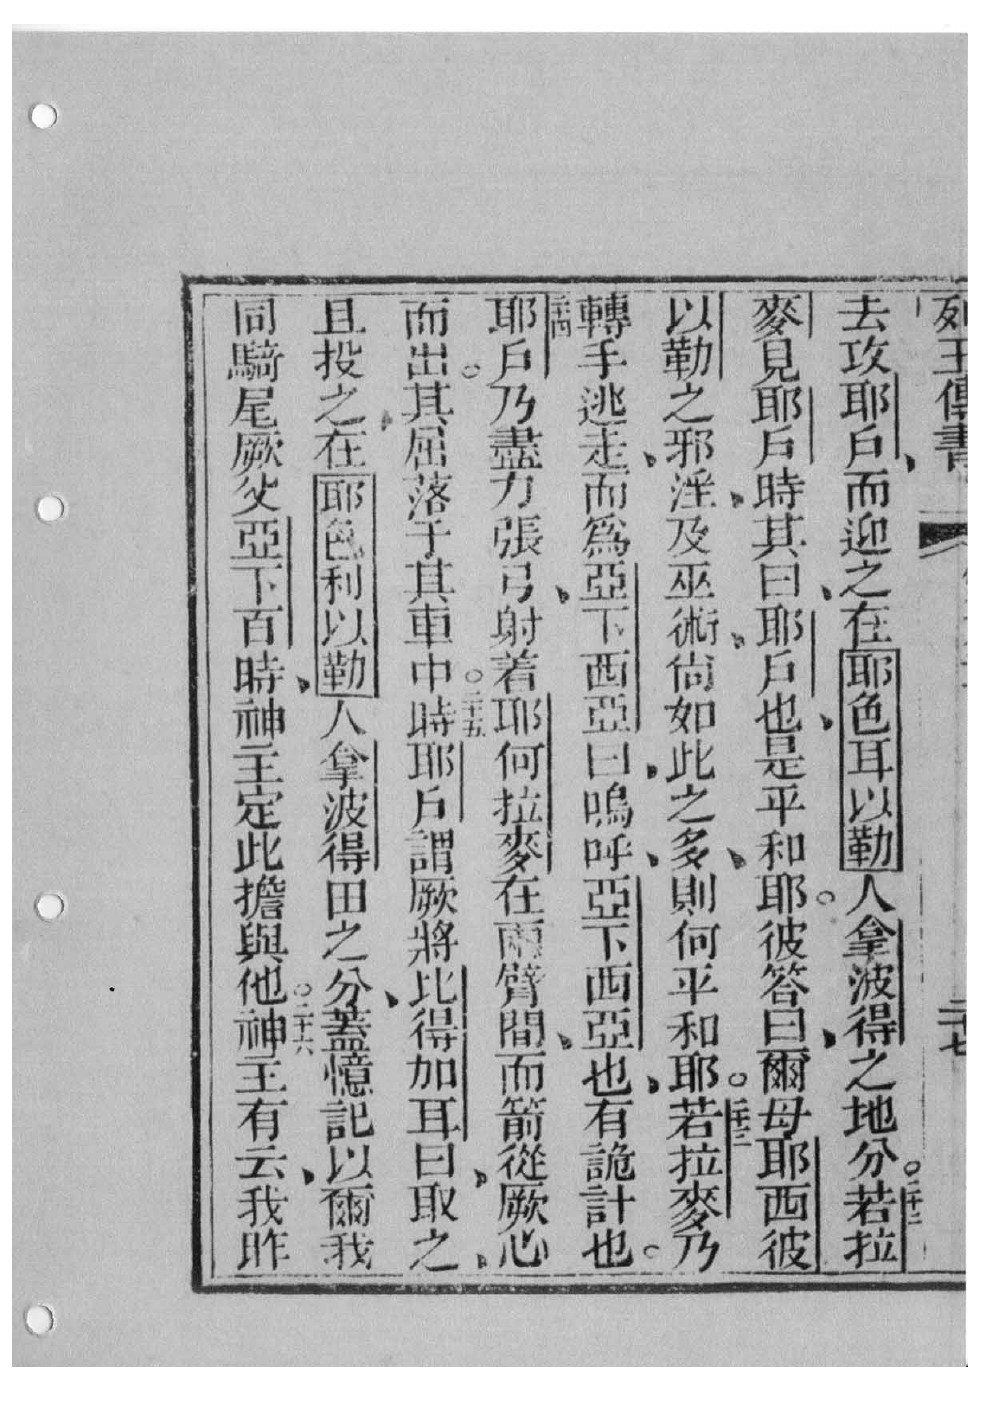 列王傳書 二十七
去攻耶戶、而迎之在耶色耳以勒人拿波得之地分。二十二若拉
麥見耶戶時其曰、耶戶也、是平和耶。彼答曰、爾母耶西彼
以勒之邪淫、及巫術、尙如此之多、則何平和耶。二十三若拉麥乃
轉手逃走、而爲亞下西亞曰、嗚呼、亞下西亞也、有詭計也。
二十四耶戶乃盡力張弓、射着耶何拉麥在兩臂間、而箭從厥心
而出。其屈落于其車中。二十五時耶戶謂厥將比得加耳曰、取之、
且投之在耶色利以勒人拿波得田之分、蓋憶記以爾我
同騎尾厥父亞下百時、神主定此擔與他。二十六神主有云、我昨